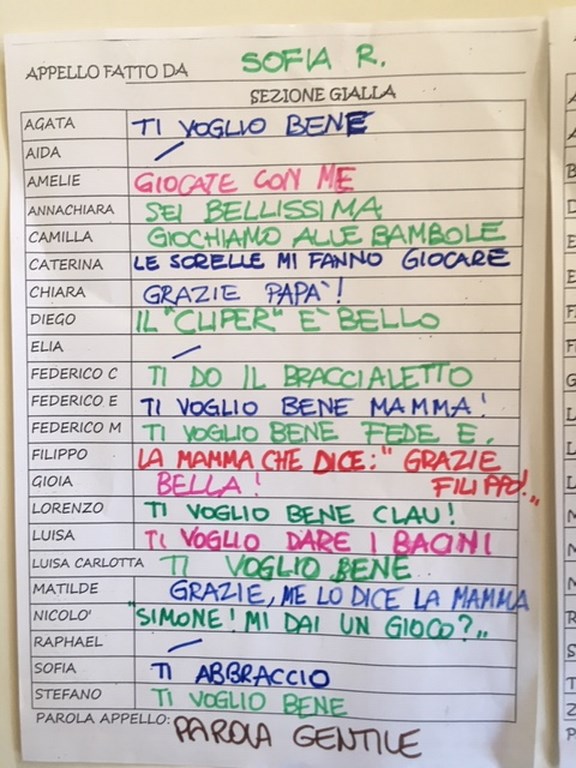 APPELLO FATTO DA SOFIA R.
SEZIONE GIALLA
AGATA TI VOGLIO BENE
AIDA /
AMELIE GIOCATE CON ME
ANNACHIARA SEI BELLISSIMA
CAMILLA GIOCHIAMO ALLE BAMBOLE
CATERINA LE SORELLE MI FANNO GIOCARE
CHIARA GRAZIE PAPA'!
DIEGO IL "CLIPER" E' BELLO
ELIA /
FEDERICO C TI DO IL BRACCIALETTO
FEDERICO E TI VOGLIO BENE MAMMA!
FEDERICO M TI VOGLIO BENE FEDE E.
FILIPPO LA MAMMA CHE DICE: "GRAZIE
FILIPPO!"
GIOIA BELLA!
LORENZO TI VOGLIO BENE CLAU!
LUISA TI VOGLIO DARE I BACINI
LUISA CARLOTTA TI VOGLIO BENE
MATILDE GRAZIE, ME LO DICE LA MAMMA
NICOLO' "SIMONE! MI DAI UN GIOCO?"
RAPHAEL /
SOFIA TI ABBRACCIO
STEFANO TI VOGLIO BENE
PAROLA APPELLO: PAROLA GENTILE